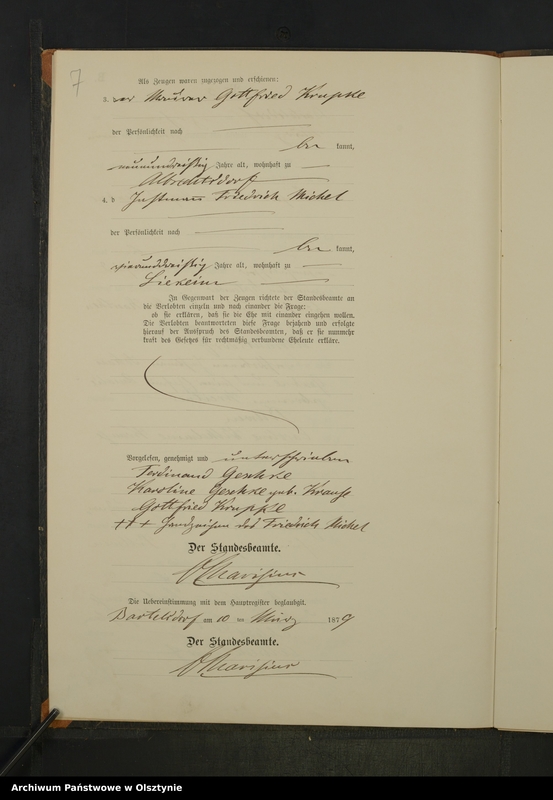 7
Als Zeugen waren zugezogen und erschienen:
3. der Maurer Gottfried Kruppke
der Persönlichkeit nach
be kannt,
neunundreißig Jahre alt, wohnhaft zu
Albrechtsdorf
4. d Instmann Friedrich Michel
der Persönlichkeit nach
be kannt,
vierunddreißig Jahre alt, wohnhaft zu
Liekeim
In Gegenwart der Zeugen richtete der Standesbeamte an
die Verlobten einzeln und nach einander die Frage:
ob sie erklären, daß sie die Ehe mit einander eingehen wollen.
Die Verlobten beantworteten diese Frage bejahend und erfolgte
hierauf der Ausspruch des Standesbeamten, daß er sie nunmehr
kraft des Gesetzes für rechtmäßig verbundene Eheleute erkläre.
Vorgelesen, genehmigt und unterschrieben
Ferdinand Geschke
Karoline Geschke geb. Krause
Gottfried Kruppke
+++ Handzeichen des Friedrich Michel
Der Standesbeamte.
Die Uebereinstimmung mit dem Hauptregister beglaubigt.
Bartelsdorf am 10 ten März 1879
Der Standesbeamte.
Archiwum Państwowe w Olsztynie